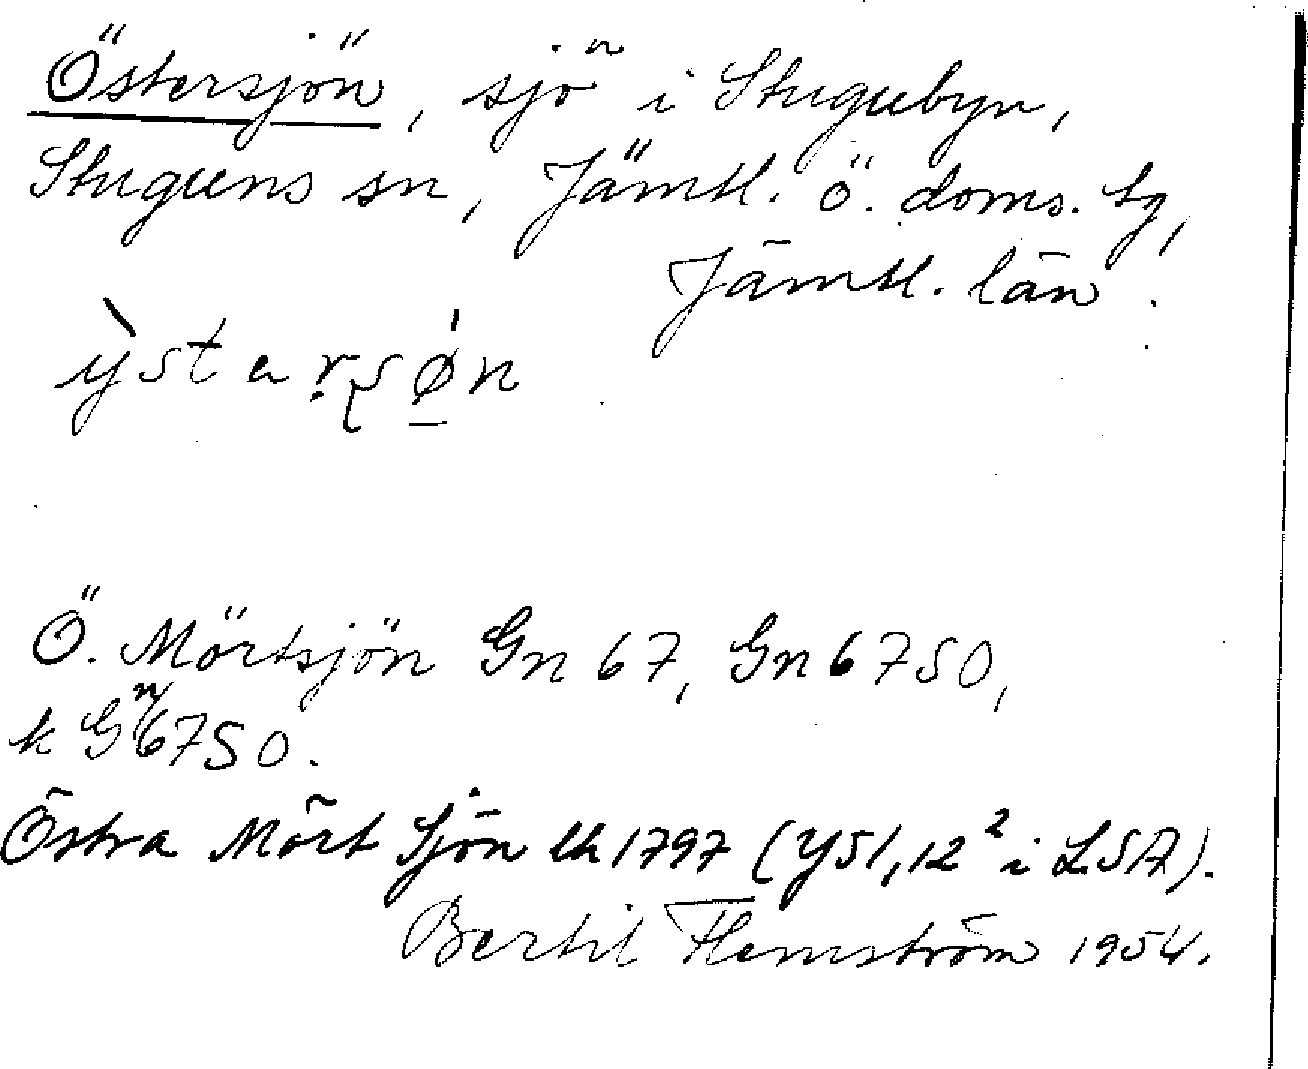 Östersjön, sjö i Stugubyn,
Stuguns sn, Jämtl. ö. doms. tg,
Jämtl. län.
Ö. Mörtsjön Gn 67, Gn 67SO,
k Gn 67SO.
Östra Mört Sjön lk 1797 (Y51,12² i LSA).
Bertil Flemström 1954.